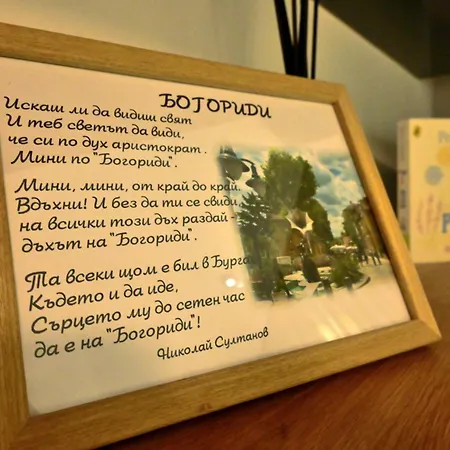 БОГОРИДИ
Искаш ли да видиш свят
И теб светът да види,
че си по дух аристократ.
Мини по "Богориди".
Мини, мини, от край до край.
Вдъхни! И без да ти се свиди,
на всички този дъх раздай -
дъхът на "Богориди".
Та всеки щом е бил в Бурга
Където и да иде,
Сърцето му до сетен час
да е на "Богориди"!
Николай Султанов